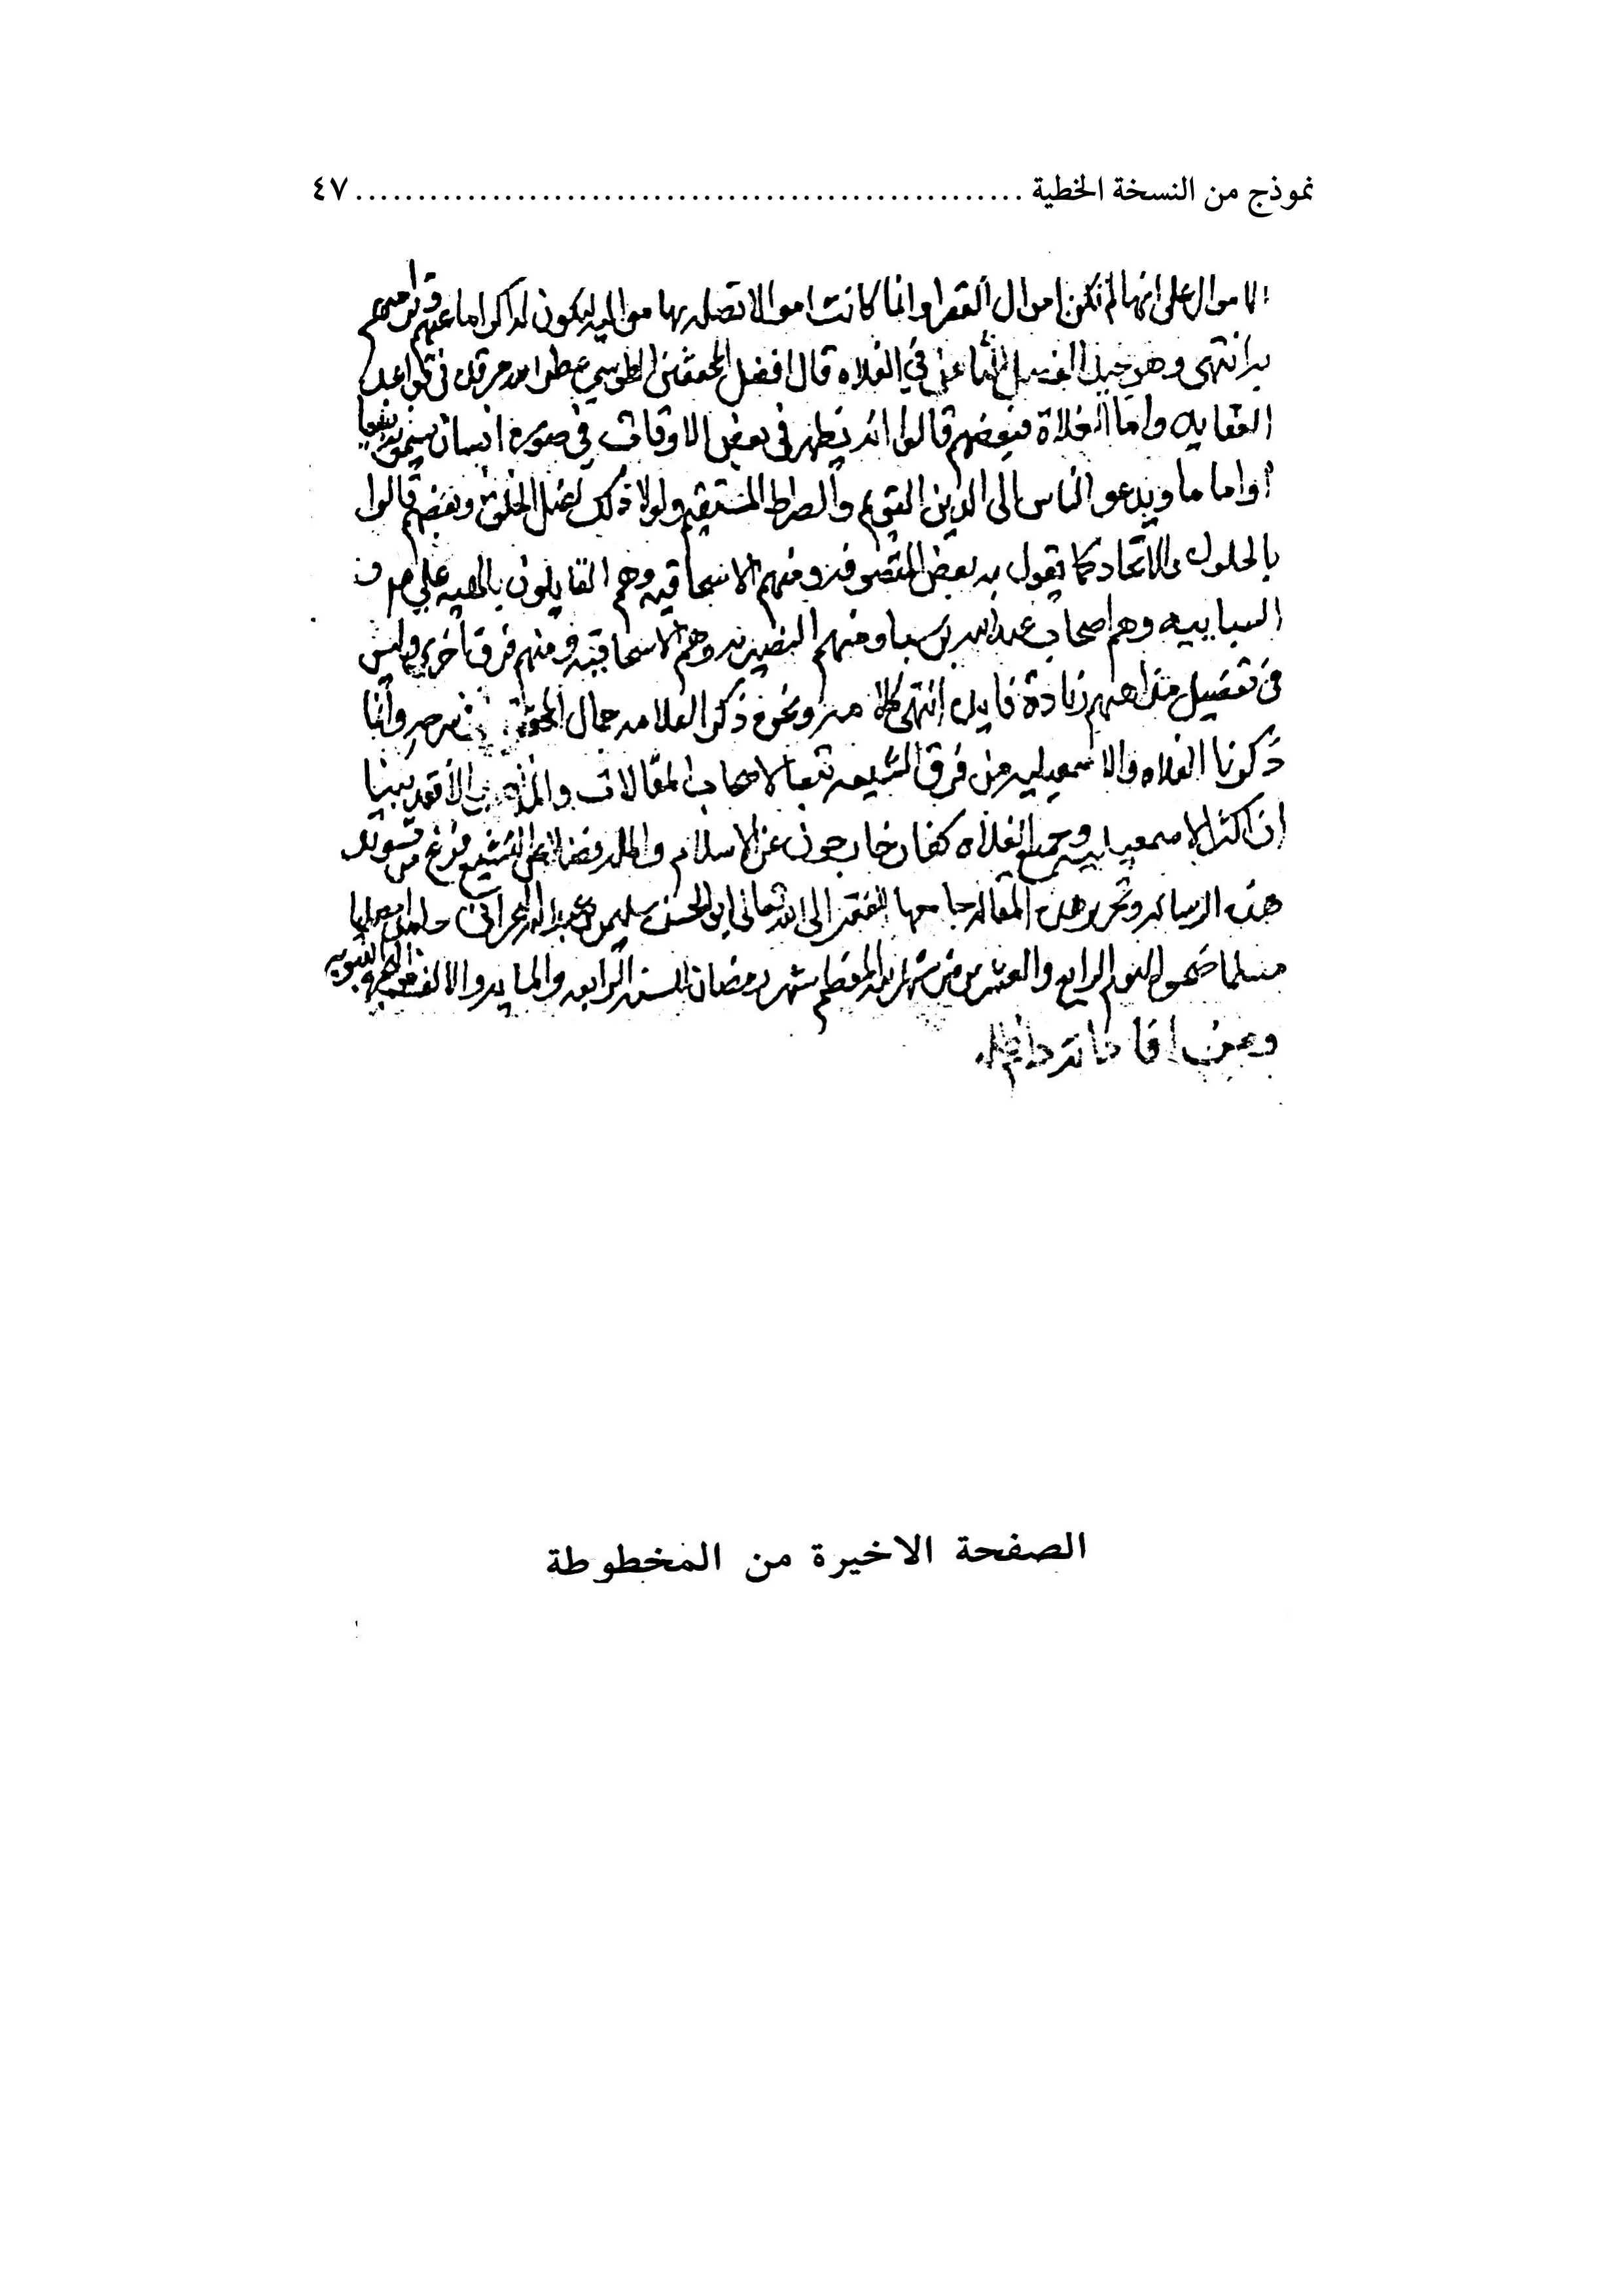 نموذج من النسخة الخطية ........................................................ ٤٧
الاموال على انها لم تكن اموال الفقرا وانما كانت اموالا تصله بها مواليه ليكون له اكراما
انتهى وهو جيد الفصل الثامن في الغلاه قال افضل المحققين الطوسي في قواعد
العقايد واما الغلاة فبعضهم قالوا انه يظهر في بعض الاوقات في صورة انسان يسمونه نبيا
او اماما ويدعو الناس الى الدين القويم والصراط المستقيم ولولا ذلك لضل الخلق وبعضهم قالوا
بالحلول والاتحاد كما يقول به بعض المتصوفه ومنهم الاسحاقيه وهم القايلون بالهيه علي
السباييه وهم اصحاب عبد الله بن سبا ومنهم النصيريه وهم الاسحاقيه ومنهم فرق اخرى وليس
في تفصيل مذاهبهم زيادة فايده انتهى كلامه ونحوه ذكر العلامه جمال وانما
ذكرنا الغلاه والاسمعيليه من فرق الشيعه تبعا لاصحاب المقالات والا فقد بينا
ان اكثر الاسمعيليه وجميع الغلاه كفار خارجون عن الاسلام والمله فضلا عن التشيع فرغ من تسويد
هذه الرساله وتحرير هذه المقاله جامعها الفقير الى الله تعالى ابو الحسن سليمن بن عبد الله البحراني حامدا مصليا
مسلما ضحوة اليوم الرابع والعشرين من شهر الله المعظم شهر رمضان للسنه الرابعه والمايه والالف من الهجره النبويه
الصفحة الاخيرة من المخطوطة